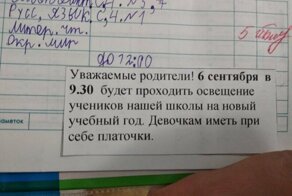 Русс. язык. С, 4. N1,
Литер. чт.
Окр. мир
до 12:00
Уважаемые родители! 6 сентября в
9.30 будет проходить освещение
учеников нашей школы на новый
учебный год. Девочкам иметь при
себе платочки.